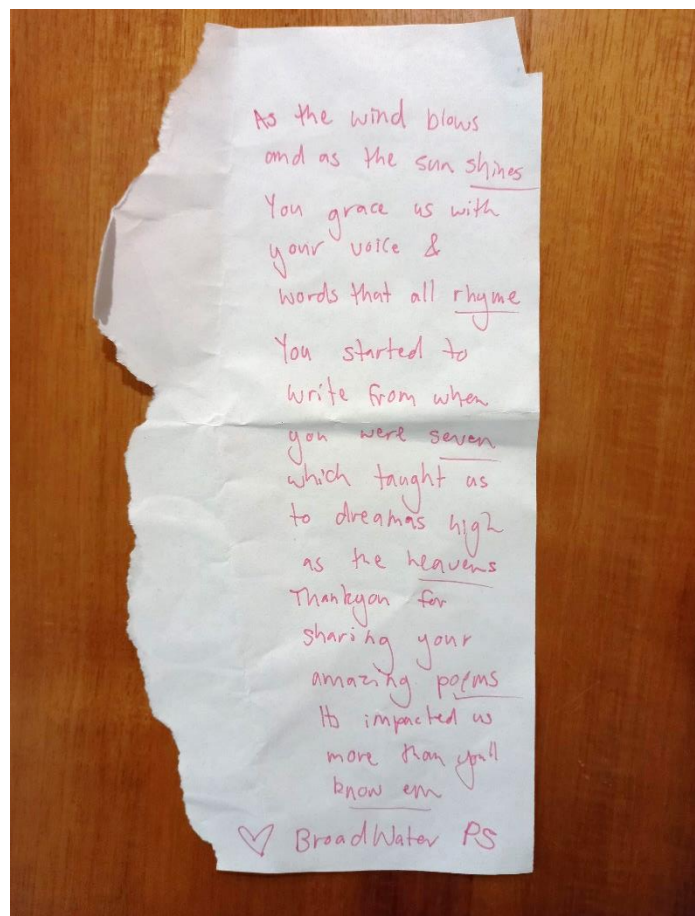 As the wind blows
and as the sun shines
You grace us with
your voice &
words that all rhyme
You started to
write from when
you were seven
which taught us
to dreamas high
as the heavens
Thankyou for
sharing your
amazing poems
Its impacted us
more than you'll
know em
♡ BroadWater PS